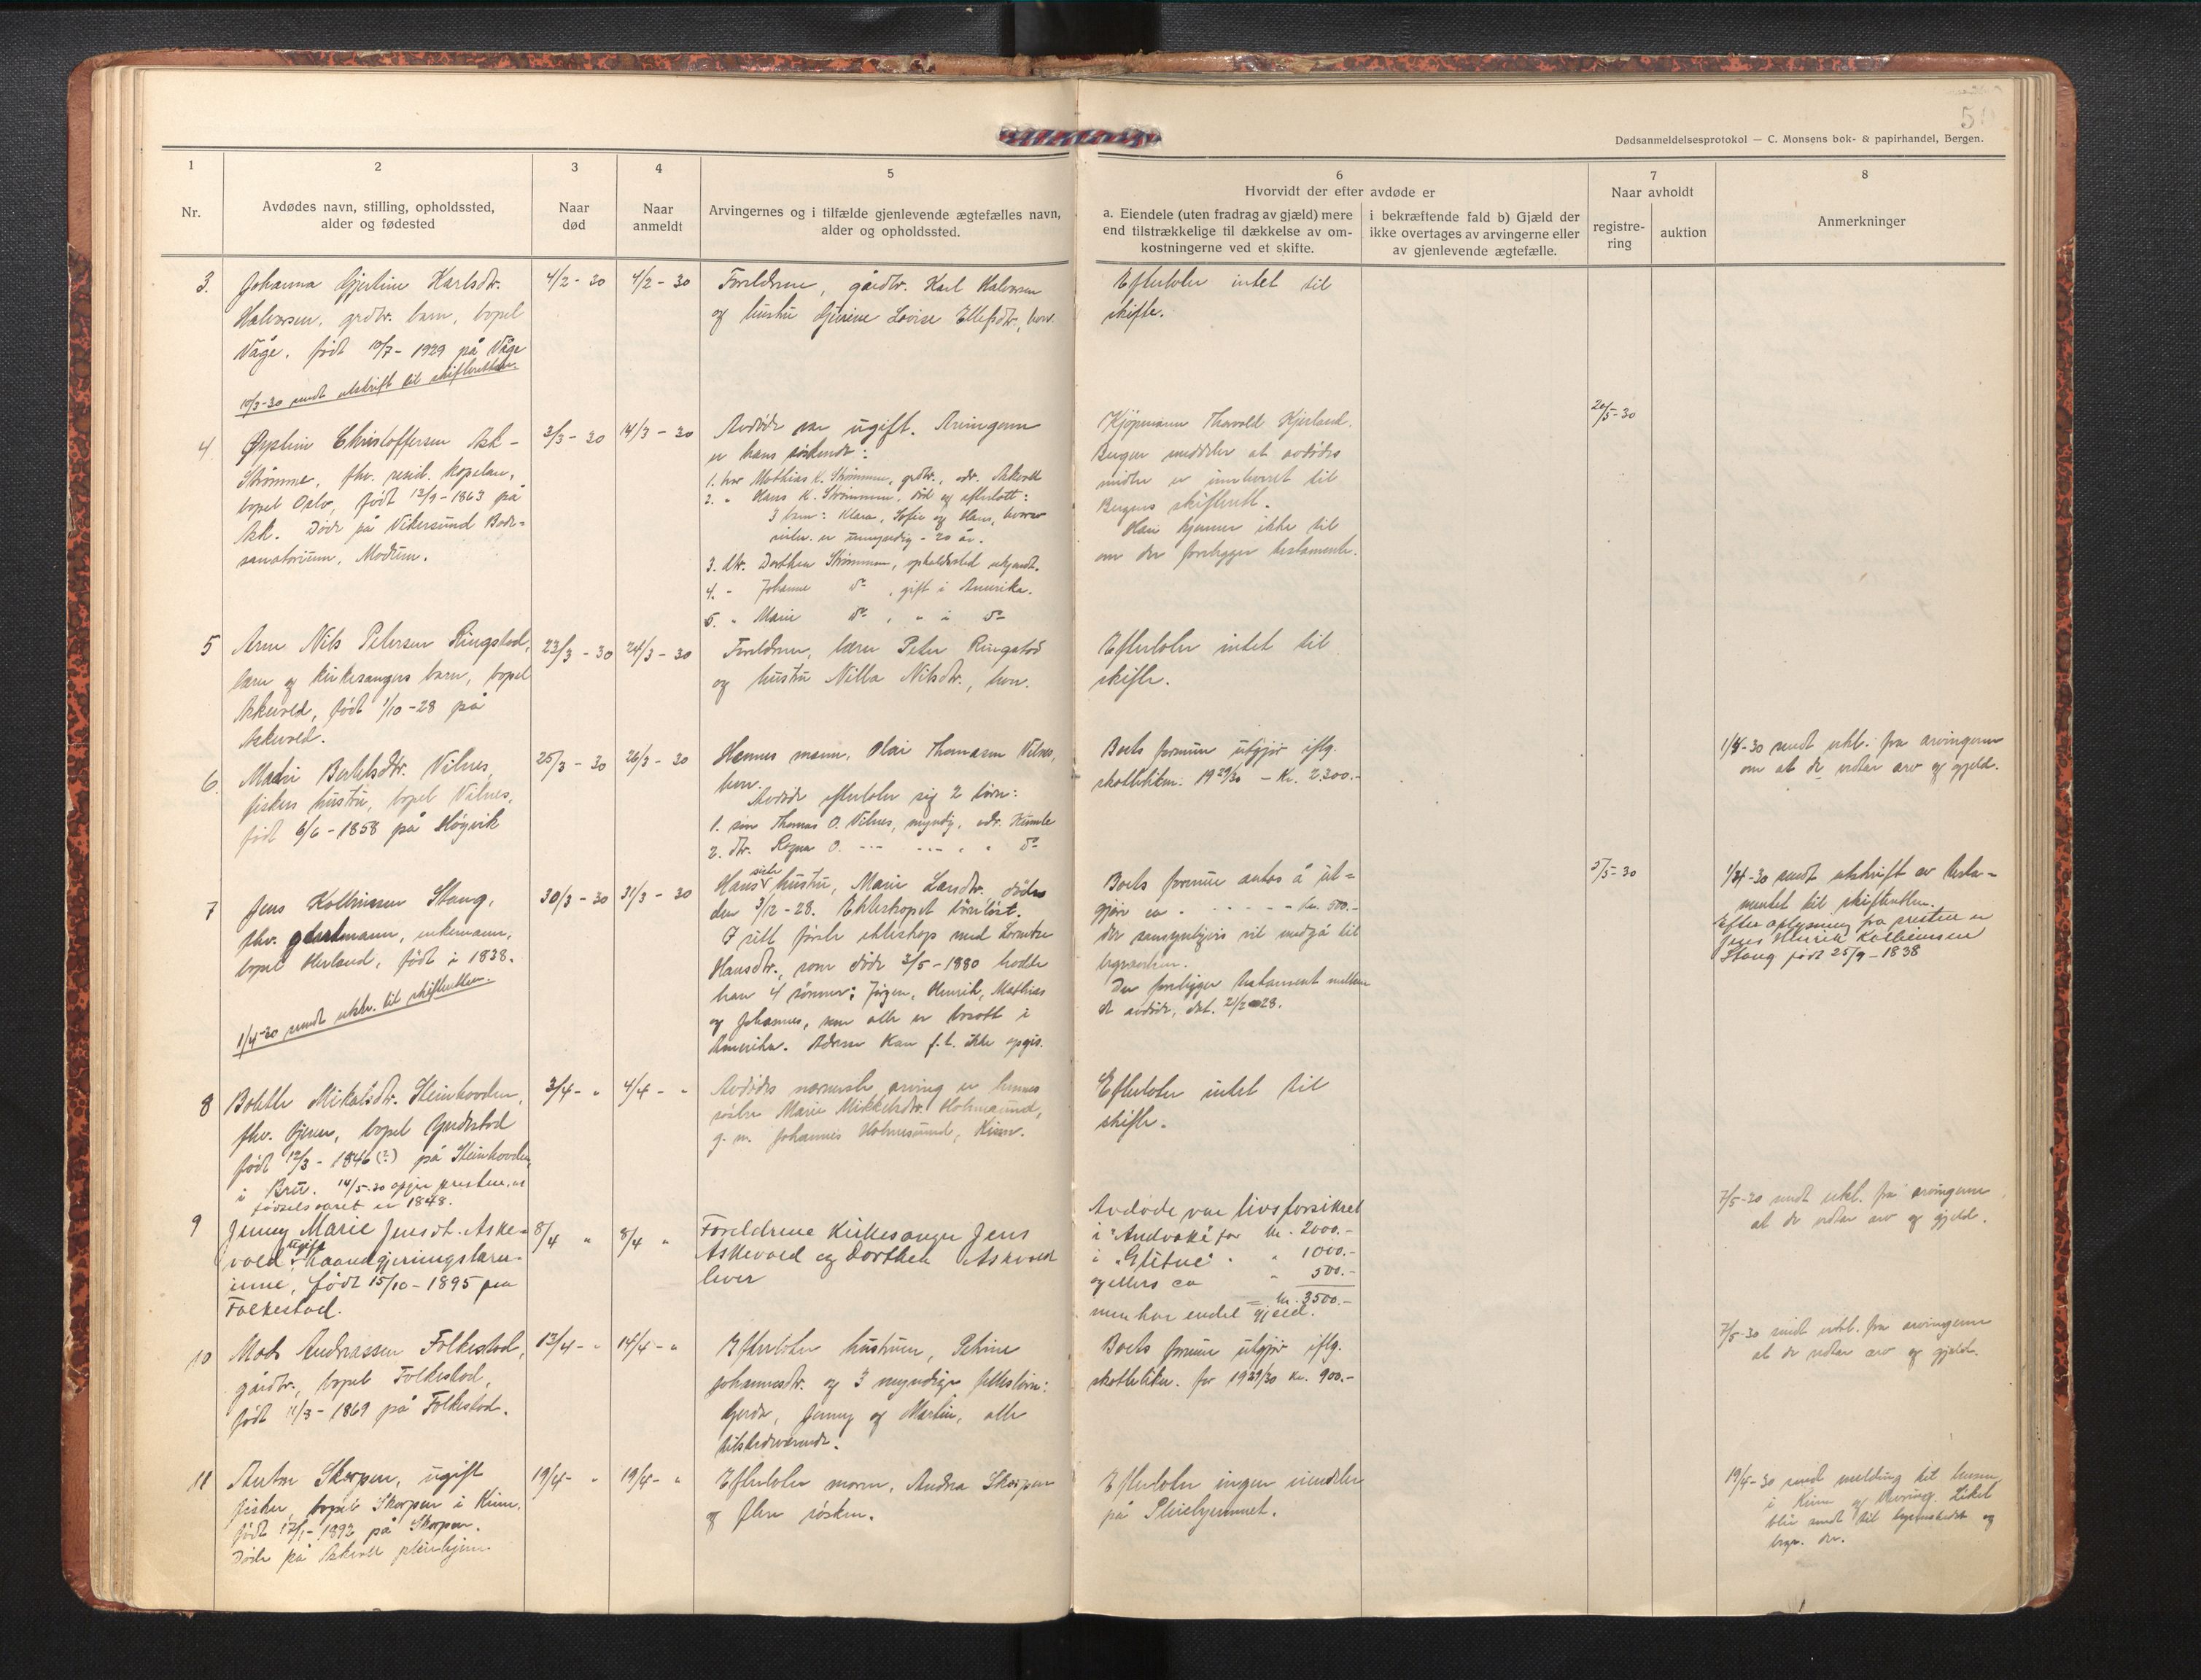 50
Dødsanmeldelsesprotokol — C. Monsens bok- & papirhandel, Bergen.
1
Nr.
2
Avdødes navn, stilling, opholdssted,
alder og fødested
3
Naar
død
4
Naar
anmeldt
5
Arvingernes og i tilfælde gjenlevende ægtefælles navn,
alder og opholdssted.
6
Hvorvidt der efter avdøde er
a. Eiendele (uten fradrag av gjæld) mere
end tilstrækkelige til dækkelse av om-
kostningerne ved et skifte.
i bekræftende fald b) Gjæld der
ikke overtages av arvingerne eller
av gjenlevende ægtefælle.
7
Naar avholdt
registre-
ring
auktion
8
Anmerkninger
3.
Johanna Gjertine Karlsdtr.
Halvorsen, grdbr. barn, bopel
Våge, født 10/7 - 1929 på Våge
10/3-30 sendt utskrift til skifteretten.
4/2 - 30
4/2 - 30
Foreldrene, gårdbr. Karl Halvorsen
og hustru Gjerine Lovise Ellefsdtr., her.
Efterlater intet til
skifte.
4.
Øystein Christoffersen Ask-
Strømme, fhv. resid. kapelan,
bopel Oslo, født 12/9 - 1863 på
Ask. Døde på Vikersund Bade-
sanatorium, Modum.
3/3 - 30
14/3 - 30
Avdøde var ugift. Arvingene
er hans søskende:
1. bror Mathias K. Strømmen, grdbr., adr. Askvoll
2. " Hans K. Strømmen, død og efterlatt:
3 barn: Klara, Sofie og Hans, hvorav
sistn. er umyndig - 20 år.
3. dtr. Dorthea Strømmen, opholdssted ukjendt.
4. - Johanne do , gift i Amerika.
5. " Marie do , " i do
Kjøpmann Thorvald Kjerland,
Bergen meddeler at avdødes
midler er innberet til
Bergens skifterett.
Han kjenner ikke til
om der foreligger testamente.
20/5-30
5
Arne Nils Petersen Ringstad,
lærer og kirkesangers barn, bopel
Askvold, født 1/10-28 på
Askvold.
23/3 - 30
24/3 - 30
Foreldrene, lærer Peter Ringstad
og hustru Nilla Nilsdtr., her.
Efterlater intet til
skifte.
6.
Madri Bertelsdtr. Vilnes,
fiskers hustru, bopel Vilnes,
født 6/6 - 1858 på Høyvik
25/3 - 30
26/3 - 30
Hennes mann, Olai Thomasen Vilnes,
her.
Avdøde efterlater sig 2 barn:
1. søn Thomas O. Vilnes, myndig, adr. Humle
2. dtr. Ragna O. --- --- , " do
Boets formue utgjør iflg.
skattelikn. 1929/30 - Kr. 2300.-
1/4-30 sendt erkl. fra arvingerne
om at de vedtar arv og gjeld.
7
Jens Kolbeinsen Staug,
fhv. gårdmann, enkemann,
bopel Herland, født i 1838.
1/4-30 sendt utskr. til skifteretten.
30/3 - 30
31/3 - 30
Hans siste hustru, Marie Larsdtr. døde
den 3/12-28. Ekteskapet barnløst.
I sitt første ekteskap med
Hansdtr., som døde 3/5-1880 hadde
han 4 sønner: Jørgen, Henrik, Mathias
og Johannes, som alle er bosatt i
Amerika. Adresse kan f.t. ikke opgis.
Boets formue antas å ut-
gjøre ca. - - - - - kr. 500.-
der sansynligvis vil medgå til
begravelsen.
Der foreligger testament mellem
de avdøde, dat. 21/2-28.
2/5-30
1/4-30 sendt utskrift av testa-
mentet til skifteretten.
Efter oplysning fra presten er
Jens Henrik Kolbeinsen
Staug født 25/9-1838
8
Bolette Mikalsdtr. Steinhovden,
fhv. tjener, bopel Grudestad
født 12/3 - 1846 (?) på Steinhovden
i Bru. 14/5-30 opgir presten at
fødselsåret er 1848.
3/4 - "
4/4 - "
Avdødes nærmeste arving er hennes
søster Marie Mikkelsdtr. Holmesund,
g. m. Johannes Holmesund, Kinn.
Efterlater intet til
skifte.
9
Jenny Marie Jensdt. Aske-
vold ugift haandgjerningslærer-
inne, født 15/10-1895 paa
Folkestad.
8/4 "
8/4 "
Foreldrene Kirkesanger Jens
Askevold og Dorthea Askvold
lever
Avdøde var livsforsikret
i "Andvake" for kr. 2000.-
i "Glitne" " " 1000.-
og ellers ca " 500.-
= kr. 3500.-
men har endel gjeld.
7/5-30 sendt erkl. fra arvingerne
at de vedtar arv og gjeld.
10
Mads Andreassen Folkestad,
gårdbr., bopel Folkestad,
født 11/3 - 1869 på Folkestad.
13/4 - "
14/4 - "
Efterlater hustruen, Petrine
Johannesdtr. og 3 myndige fellesbarn:
Gerda, Jenny og Martin, alle
tilstedeværende.
Boets formue utgjør iflg.
skattelikn. for 1929/30 kr. 900.-
7/5-30 sendt erkl. fra arvingerne
at de vedtar arv og gjeld.
11
Anton Skorpen, ugift
fisker, bopel Skorpen i Kinn,
født 17/1-1892 på Skorpen.
Døde på Askvoll pleiehjem.
19/4 - "
19/4 - "
Efterlater moren, Andrea Skorpen
og flere søsken.
Efterlater ingen eiendeler
på Pleiehjemmet.
19/4-30 sendt melding til lensm.
i Kinn og Bremanger. Liket
blir sendt til hjemstedet og
begr. der.